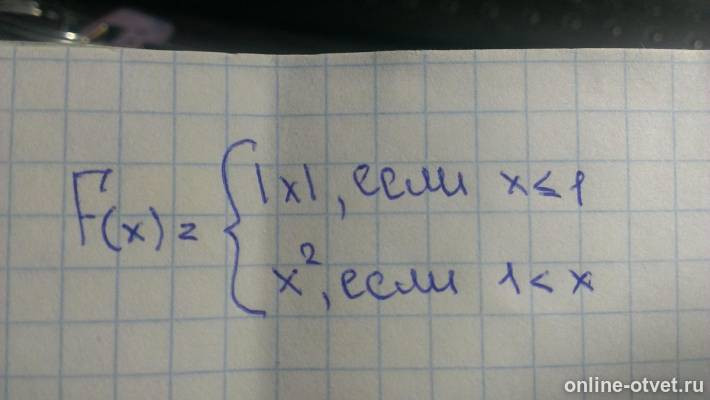 F(x) = { |x|, если x ≤ 1
x², если 1 < x
online-otvet.ru